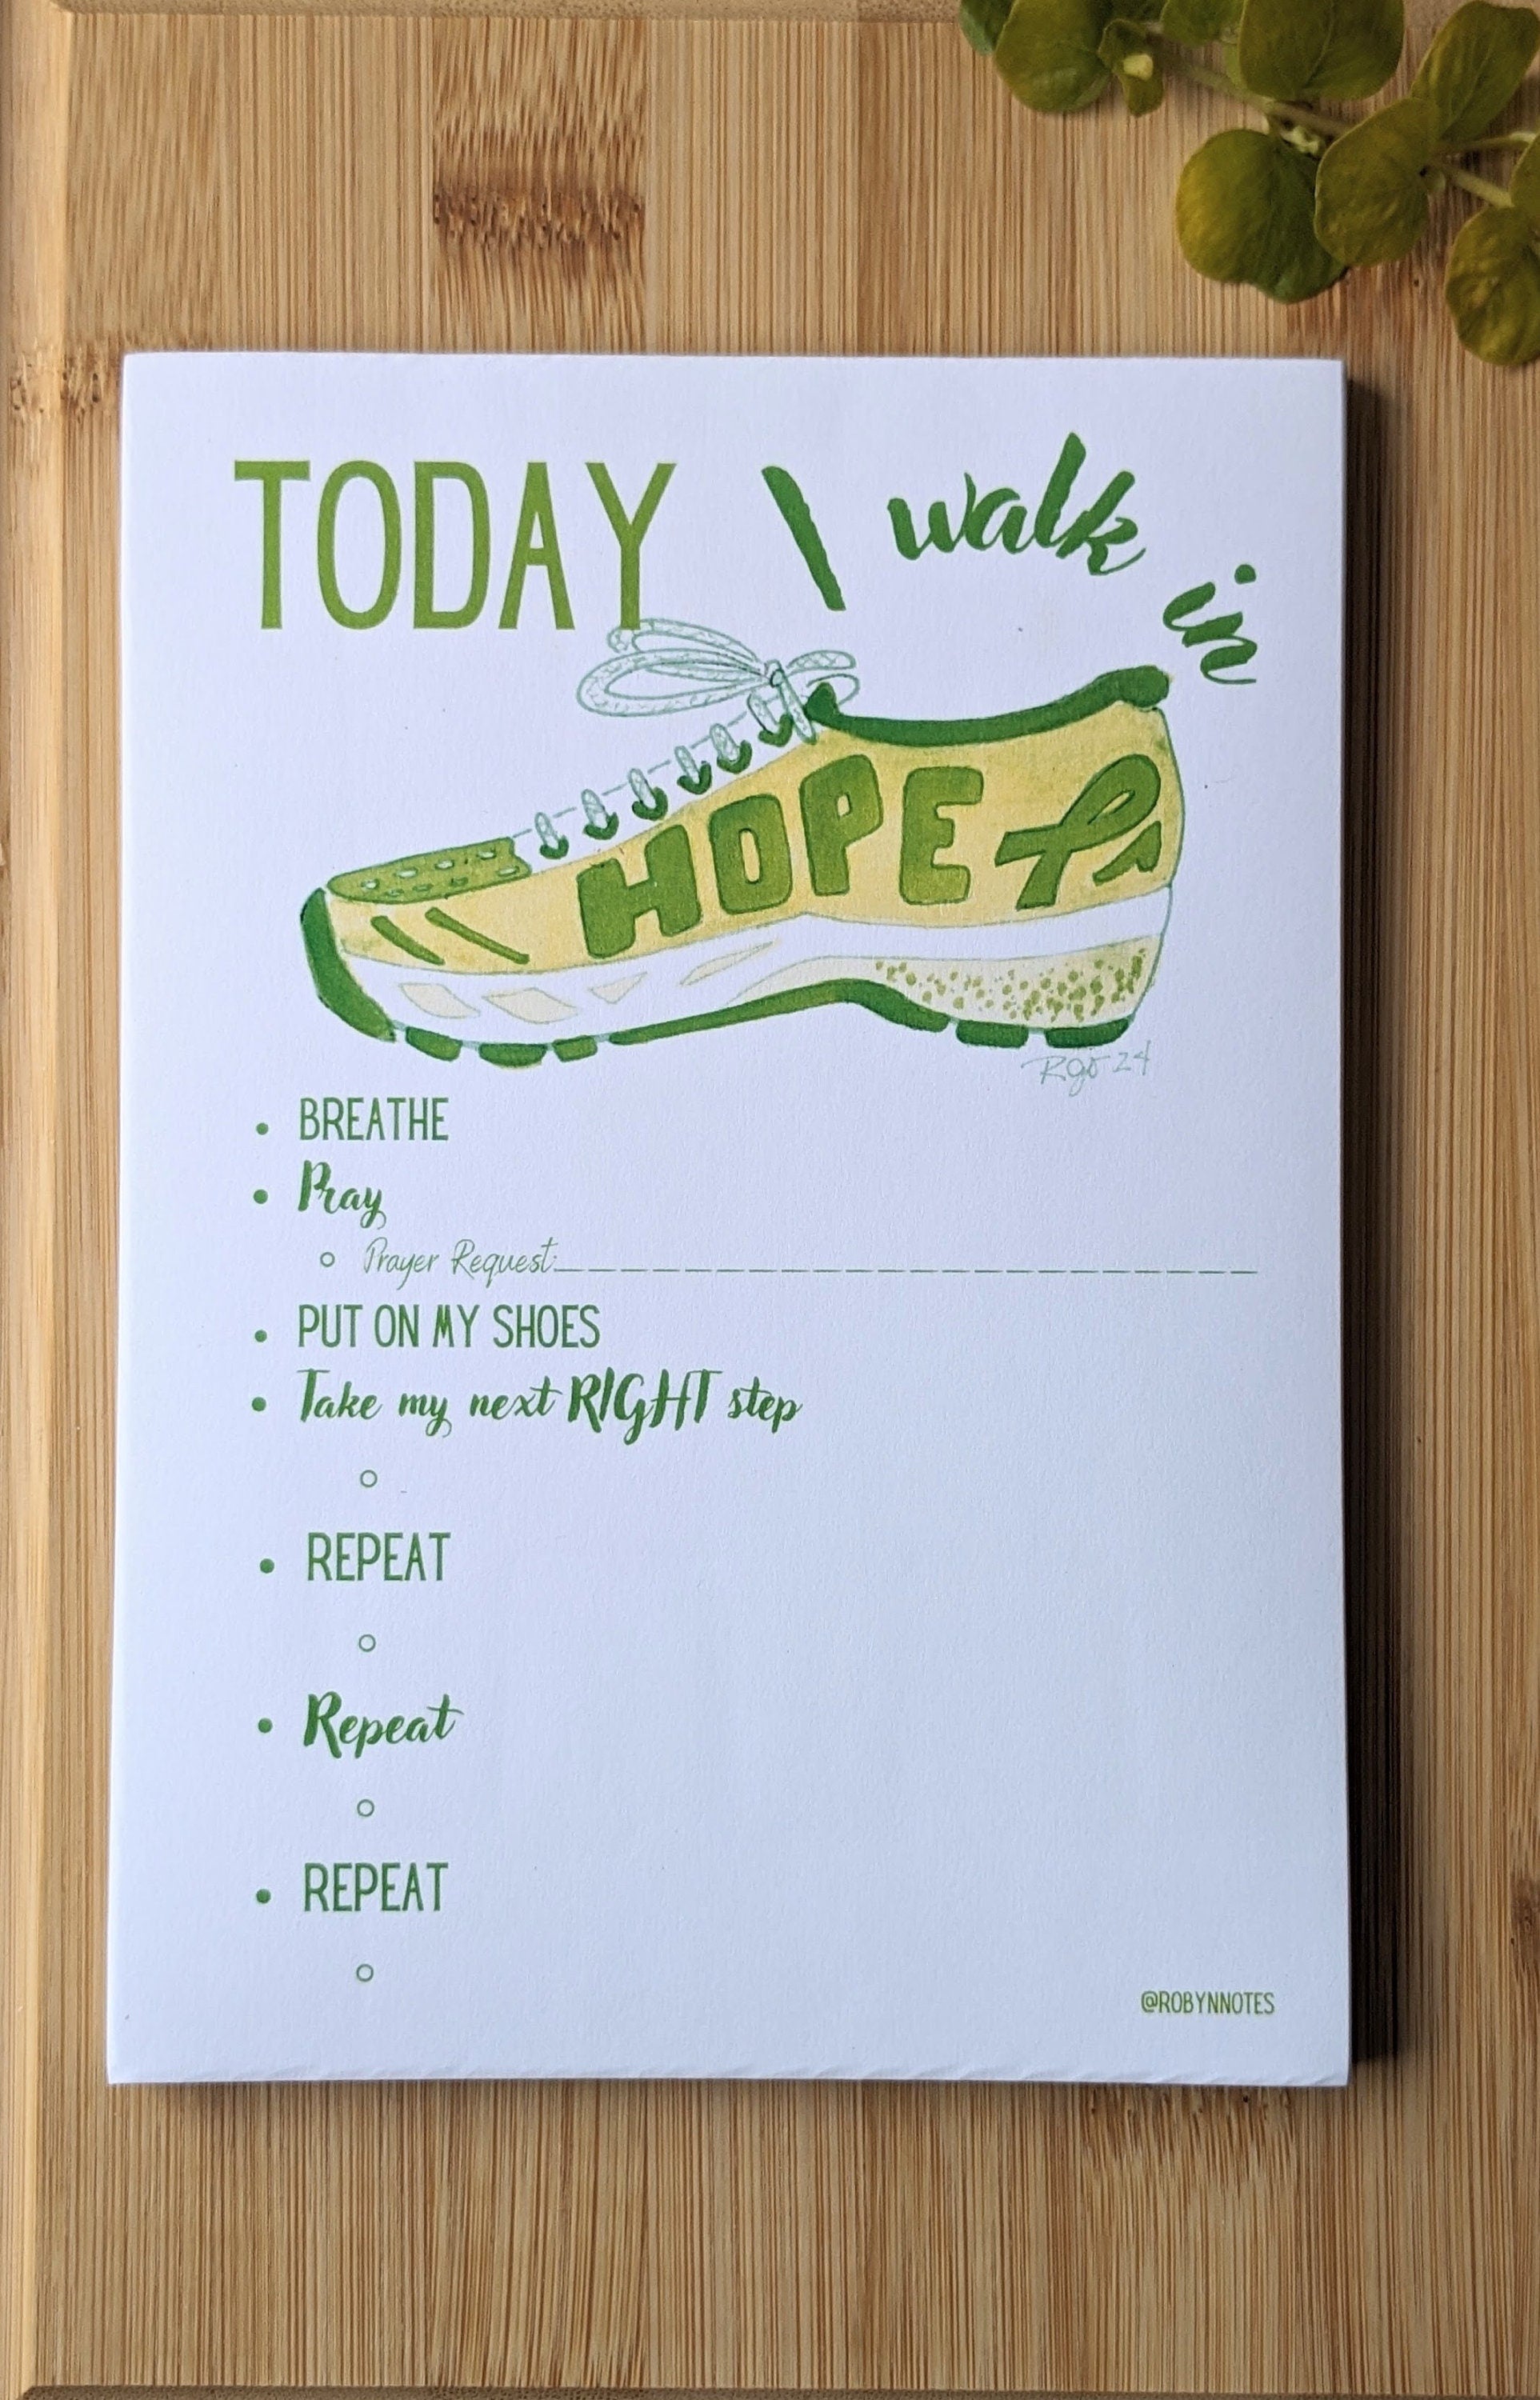 TODAY I walk in
HOPE
Rgo 24
• BREATHE
• Pray
○ Prayer Request:_______________________
• PUT ON MY SHOES
• Take my next RIGHT step
○
• REPEAT
○
• Repeat
○
• REPEAT
○
@ROBYNNOTES